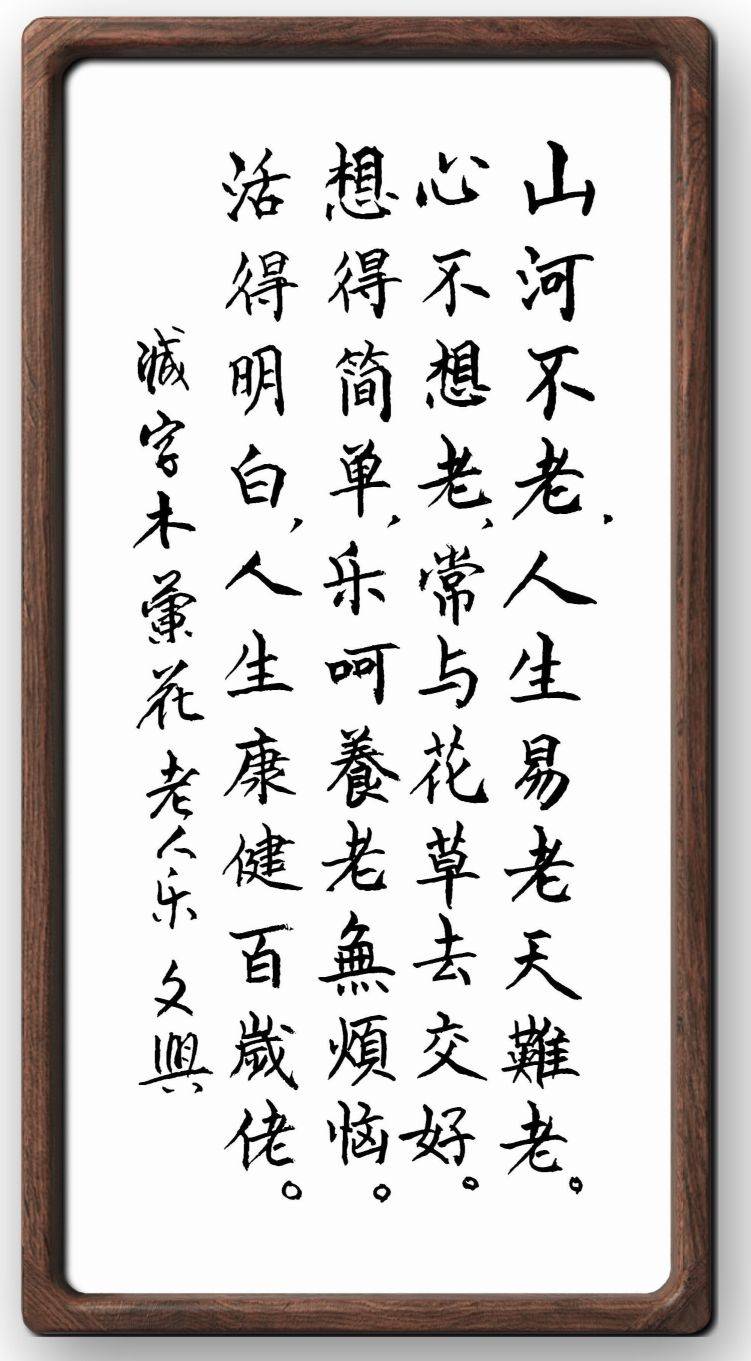 山河不老，人生易老天難老。
心不想老，常与花草去交好。
想得简单，乐呵養老無煩恼。
活得明白，人生康健百歲佬。
减字木蘭花老人乐 文興